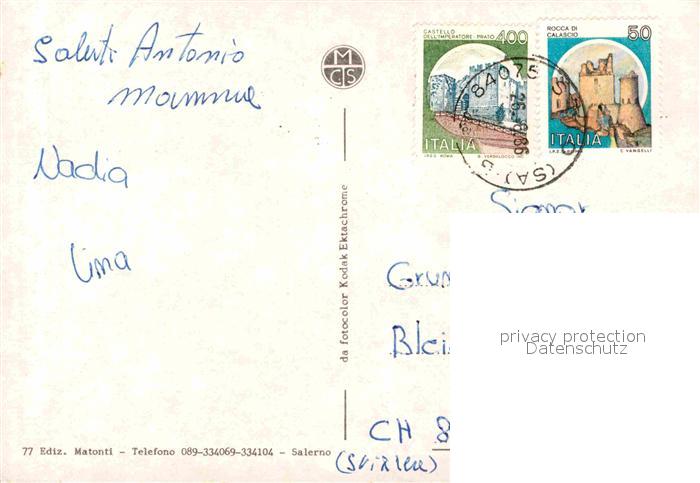 Saluti Antonio
Mamma
Nadia
Lina
M
C S
CASTELLO
DELL'IMPERATORE-PRATO 400
ITALIA
I.P.Z.S. ROMA
ROCCA DI
CALASCIO 50
ITALIA
C. VANGELLI
84075
26
86
(SA)
da fotocolor Kodak Ektachrome
Signor
Grun
Blei
CH 8
(Svizzera)
privacy protection
Datenschutz
77 Ediz. Matonti - Telefono 089-334069-334104 - Salerno